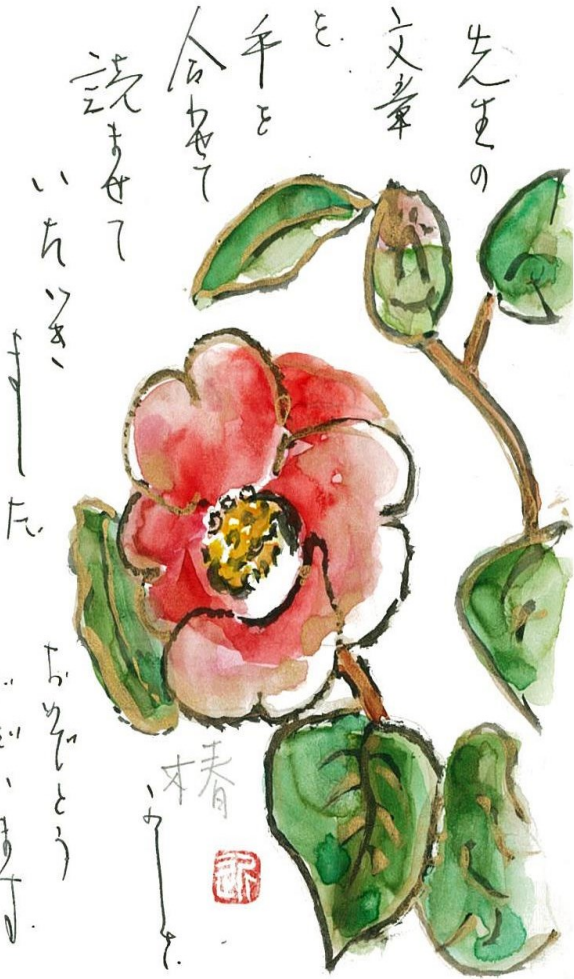 先生の
文章
を
手を
合わせて
読ませて
いただき
ました。
おめでとう
ございます。
椿